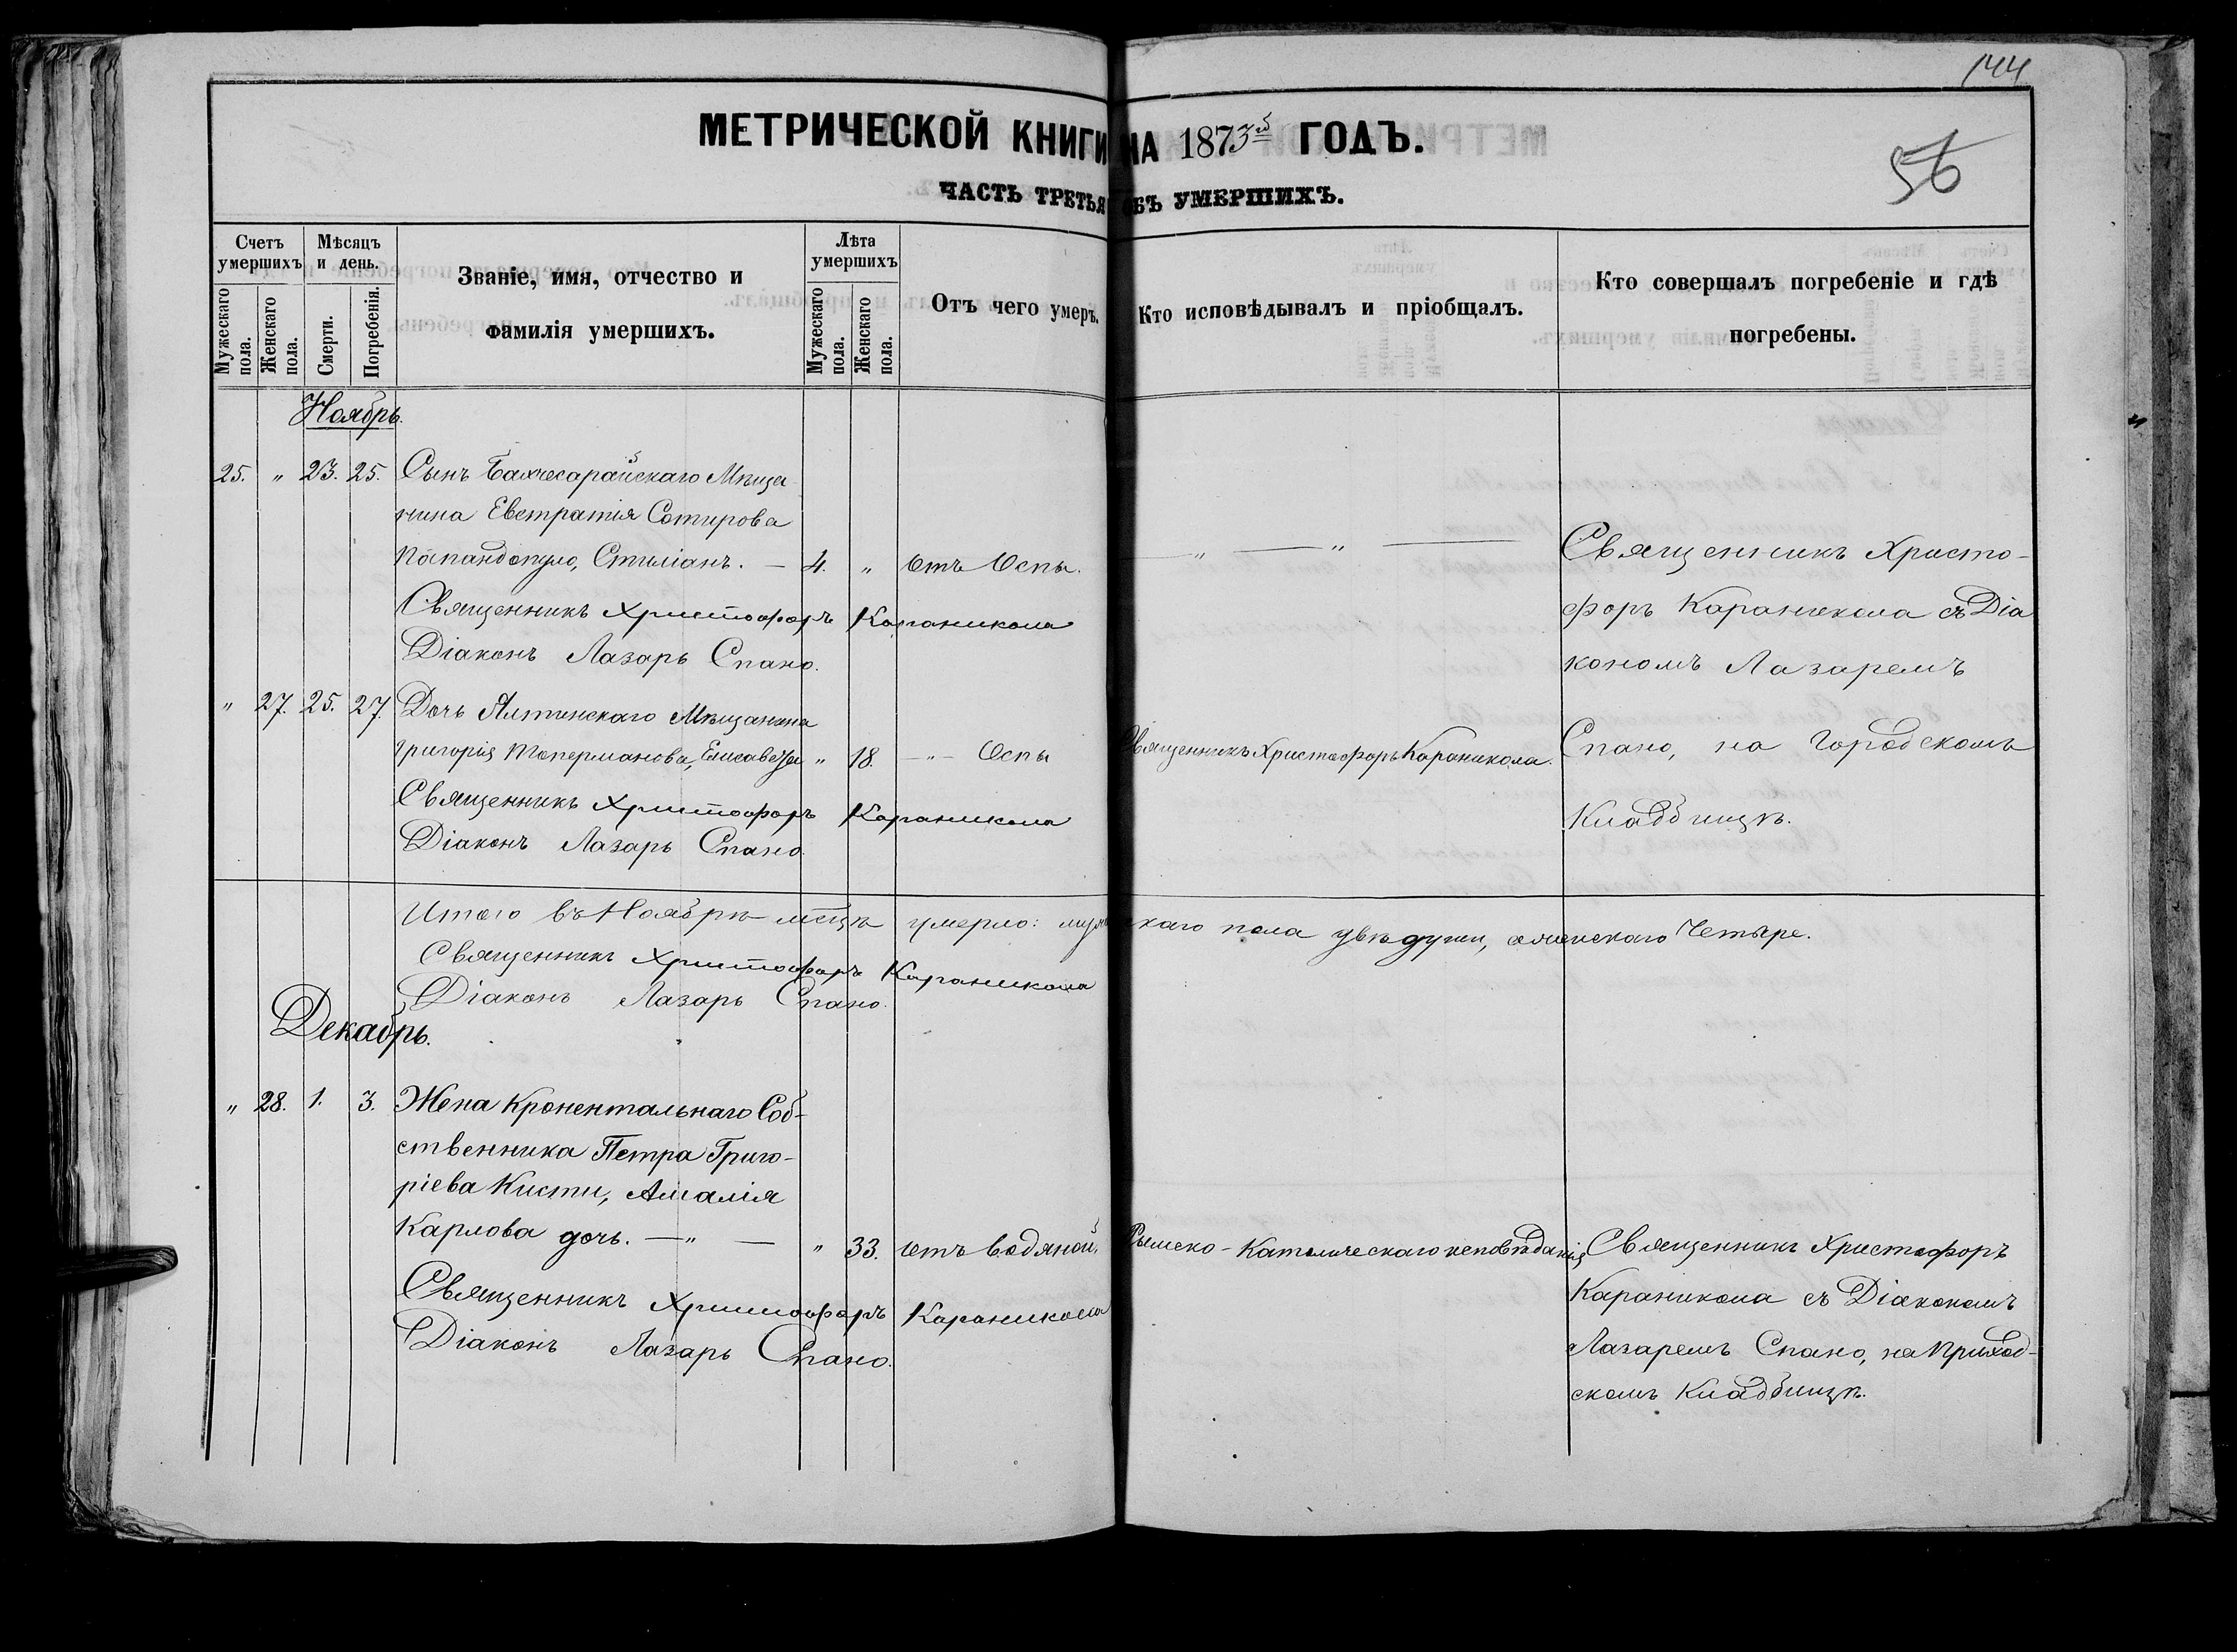 144
56
МЕТРИЧЕСКОЙ КНИГИ НА 1873й ГОДЪ.
ЧАСТЬ ТРЕТЬЯ ОБЪ УМЕРШИХЪ.
Счетъ умершихъ
Мужескаго пола.
Женскаго пола.
Мѣсяцъ и день.
Смерти.
Погребенія.
Званіе, имя, отчество и
фамилія умершихъ.
Лѣта умершихъ
Мужескаго пола.
Женскаго пола.
Отъ чего умеръ.
Кто исповѣдывалъ и пріобщалъ.
Кто совершалъ погребеніе и гдѣ
погребены.
Ноябрь.
25. " 23. 25. Сынъ Бахчесарайскаго Мѣща-
нина Евстратія Сотирова
Папандопуло, Стиліанъ. — 4. " Отъ Оспы. — " — " —
Священникъ Христофоръ Караникола
Діаконъ Лазарь Спано.
Священникъ Христо-
форъ Караникола съ Діа
кономъ Лазаремъ
Спано, на Городскомъ
Кладбищѣ.
" 27. 25. 27. Дочь Ялтинскаго Мѣщанина
Григорія Топерманова, Елисавета " 18. — " — Оспы Священникъ Христофоръ Караникола.
Священникъ Христофоръ Караникола
Діаконъ Лазарь Спано.
Итого въ Ноябрѣ мсцѣ умерло: мужескаго пола двѣ души, женскаго Четыре.
Священникъ Христофоръ Караникола
Діаконъ Лазарь Спано.
Декабрь.
" 28. 1. 3. Жена Кронентальнаго Соб-
ственника Петра Григо-
ріева Кисти, Амалія
Карлова дочь. — " — " 33. отъ водяной. Римско-Католическаго исповѣданія
Священникъ Христофоръ Караникола
Діаконъ Лазарь Спано.
Священникъ Христофоръ
Караникола съ Діакономъ
Лазаремъ Спано, на Приход-
скомъ Кладбищѣ.